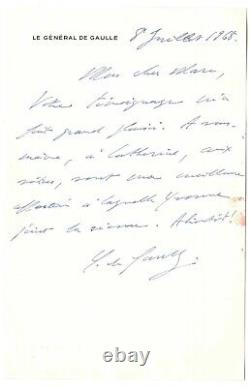 LE GÉNÉRAL DE GAULLE
8 Juillet 1968.
Mon cher Marc,
Votre témoignage m'a
fait grand plaisir. A vous-
même, à Catherine, aux
vôtres, vont ma meilleure
affection à laquelle Yvonne
joint la sienne. A bientôt!
C. de Gaulle
ebay